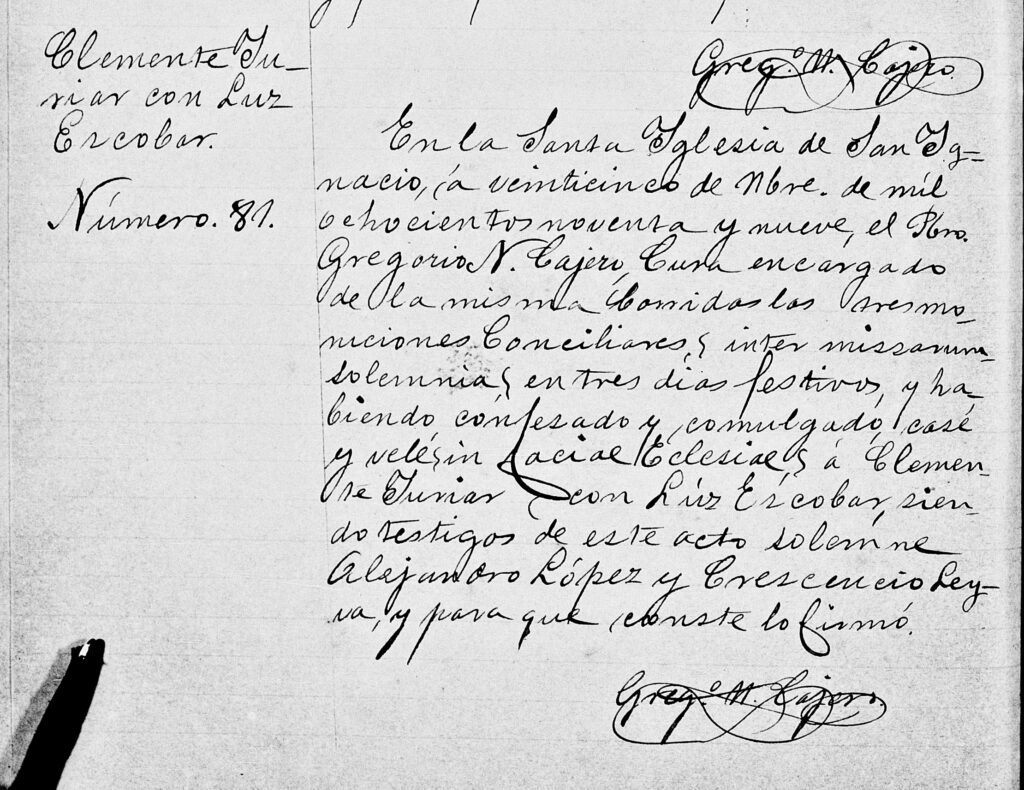 Greg.° N. Cajero.
Clemente Tu-
riar con Luz
Escobar.
Número. 81.
En la Santa Iglesia de San Ig-
nacio, á veinticinco de Nbre. de mil
ochocientos noventa y nueve, el Pbro.
Gregorio N. Cajero, Cura encargado
de la misma Corridas las tres mo-
niciones Conciliares, inter missarum
solemnia, en tres días festivos, y ha-
biendo confesado y comulgado, casé
y velé, in faciae Eclesiae, á Clemen-
te Turiar con Lúz Escobar, sien-
do testigos de este acto solemne
Alejandro López y Crescencio Ley-
va, y para que conste lo firmó.
Greg.° N. Cajero.